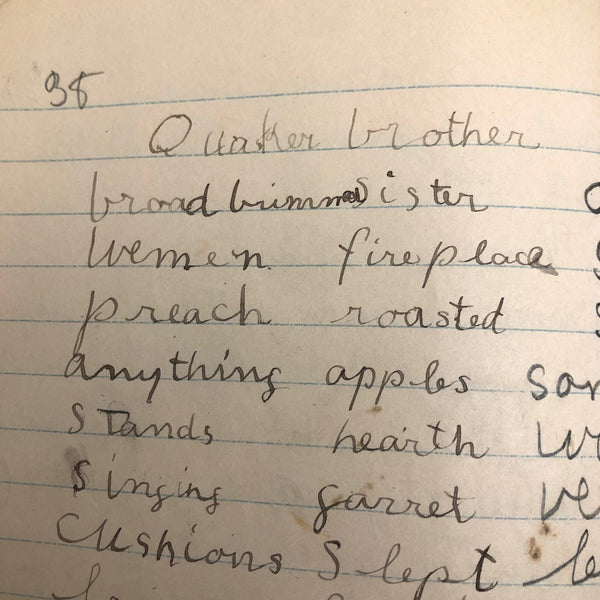 38
Quaker brother
broad brimmed sister
Wemen fireplace
preach roasted
anything apples
Stands hearth
Singing garret
Cushions Slept